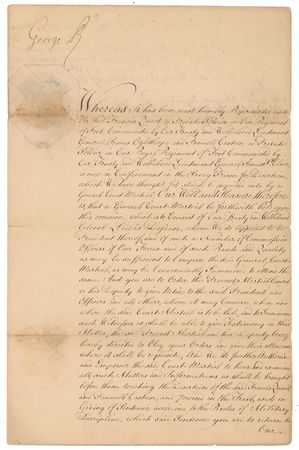 George R
Whereas it has been most humbly Represented unto
Us, that Francis Quart a Private Soldier in Our Regiment
of Foot Commanded by Our Trusty and Welbeloved Lieutenant
General James Oglethorpe and Samuel Easton a Private
Soldier in Our Regiment of Foot Commanded by
Our Trusty and Welbeloved Lieutenant General
is now in Confinement in the Savoy Prison for Desertion
which We have thought fit should be enquired into by a
General Court Martial. Our Will and Pleasure therefore
is, that a General Court Martial be forthwith held upon
this occasion, which is to Consist of Our Trusty and Welbeloved
Colonel Lewis Dejean, whom We do appoint to be
President thereof, and of such a Number of Commission
Officers of Our Foot and of such Rank and Quality
as may be sufficient to Compose the said General Court
Martial, as may be Conveniently Summon'd to attend the
same. And you are to Order the Provost Marshal General
or his Deputy to give Notice to the said President and
Officers and all others, whom it may Concern, when and
where the said Court Martial is to be held, and to Summon
such Witnesses as shall be able to give Testimony in this
Matter, the said Provost Marshal and his Deputy being
hereby directed to Obey your Orders and give their attendance
where it shall be requisite, And We do further Authorize
and Empower the said Court Martial to hear and examine
all such Matters and Informations as shall be brought
before them touching the Desertion of the said Francis Quart
and Samuel Easton, and Proceed in the Tryal, and in
Giving of Sentence according to the Rules of Military
Discipline, which said Sentence you are to return to
Our